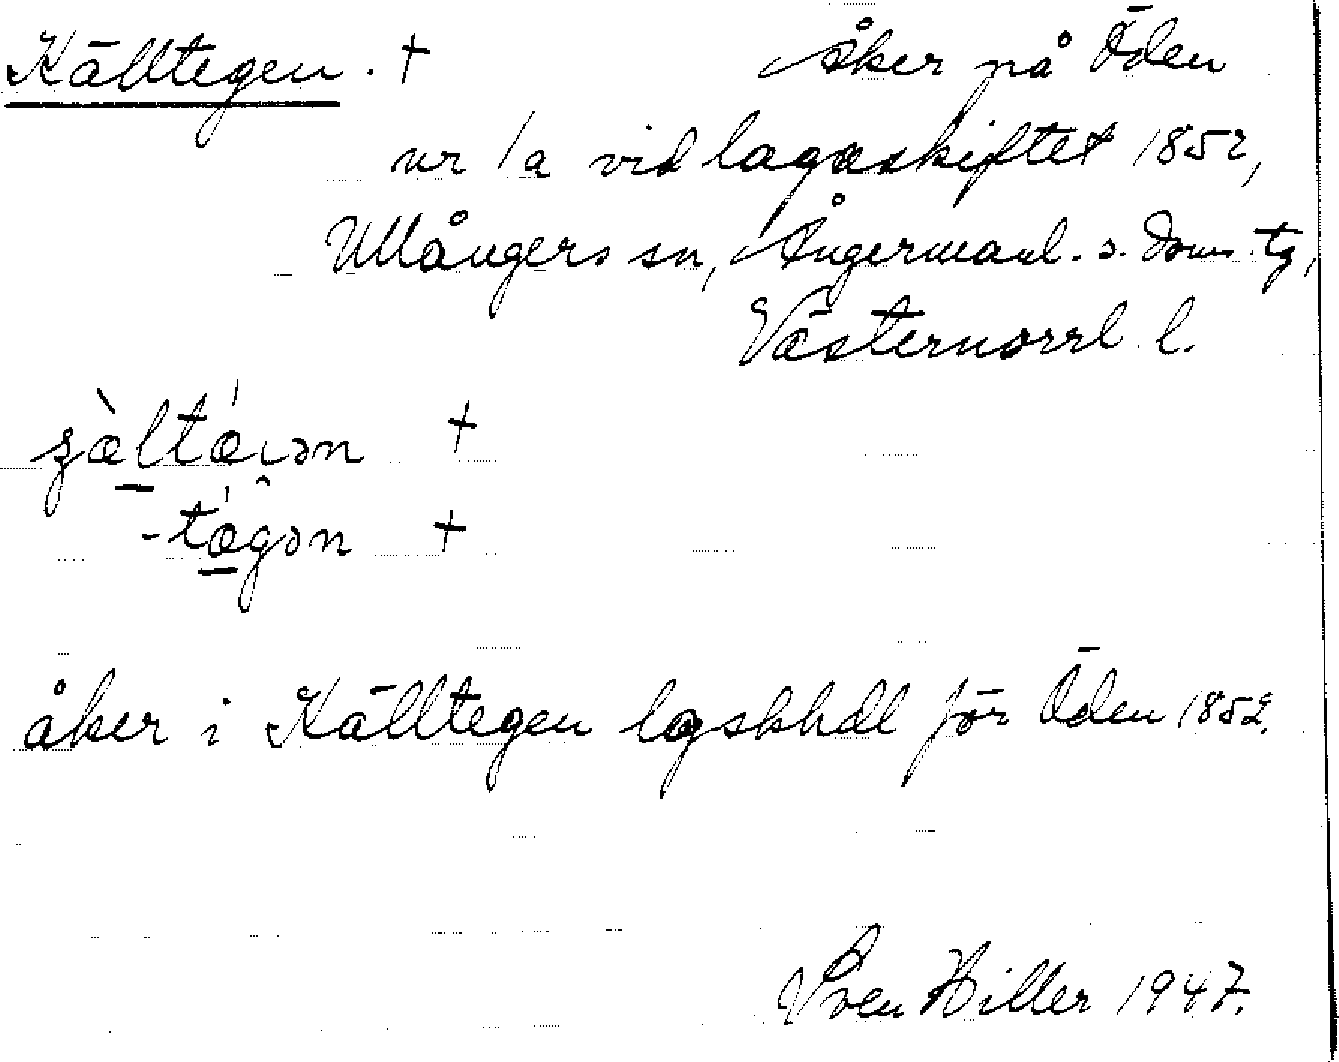 Källtegen. † Åker på Öden
nr 1a vid lagaskiftet 1852,
Ullångers sn, Ångermanl. s. doms. tg,
Västernorrl. l.
†
†
åker i Källtegen lagskhdl för Öden 1852.
Sven Hiller 1947.